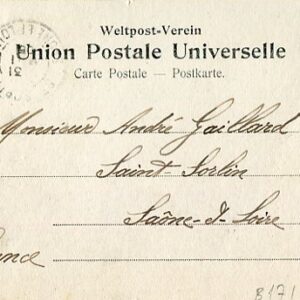 Weltpost-Verein
Union Postale Universelle
Carte Postale — Postkarte.
31
Monsieur André Gaillard
Saint-Sorlin
Saône-&-Loire
ance